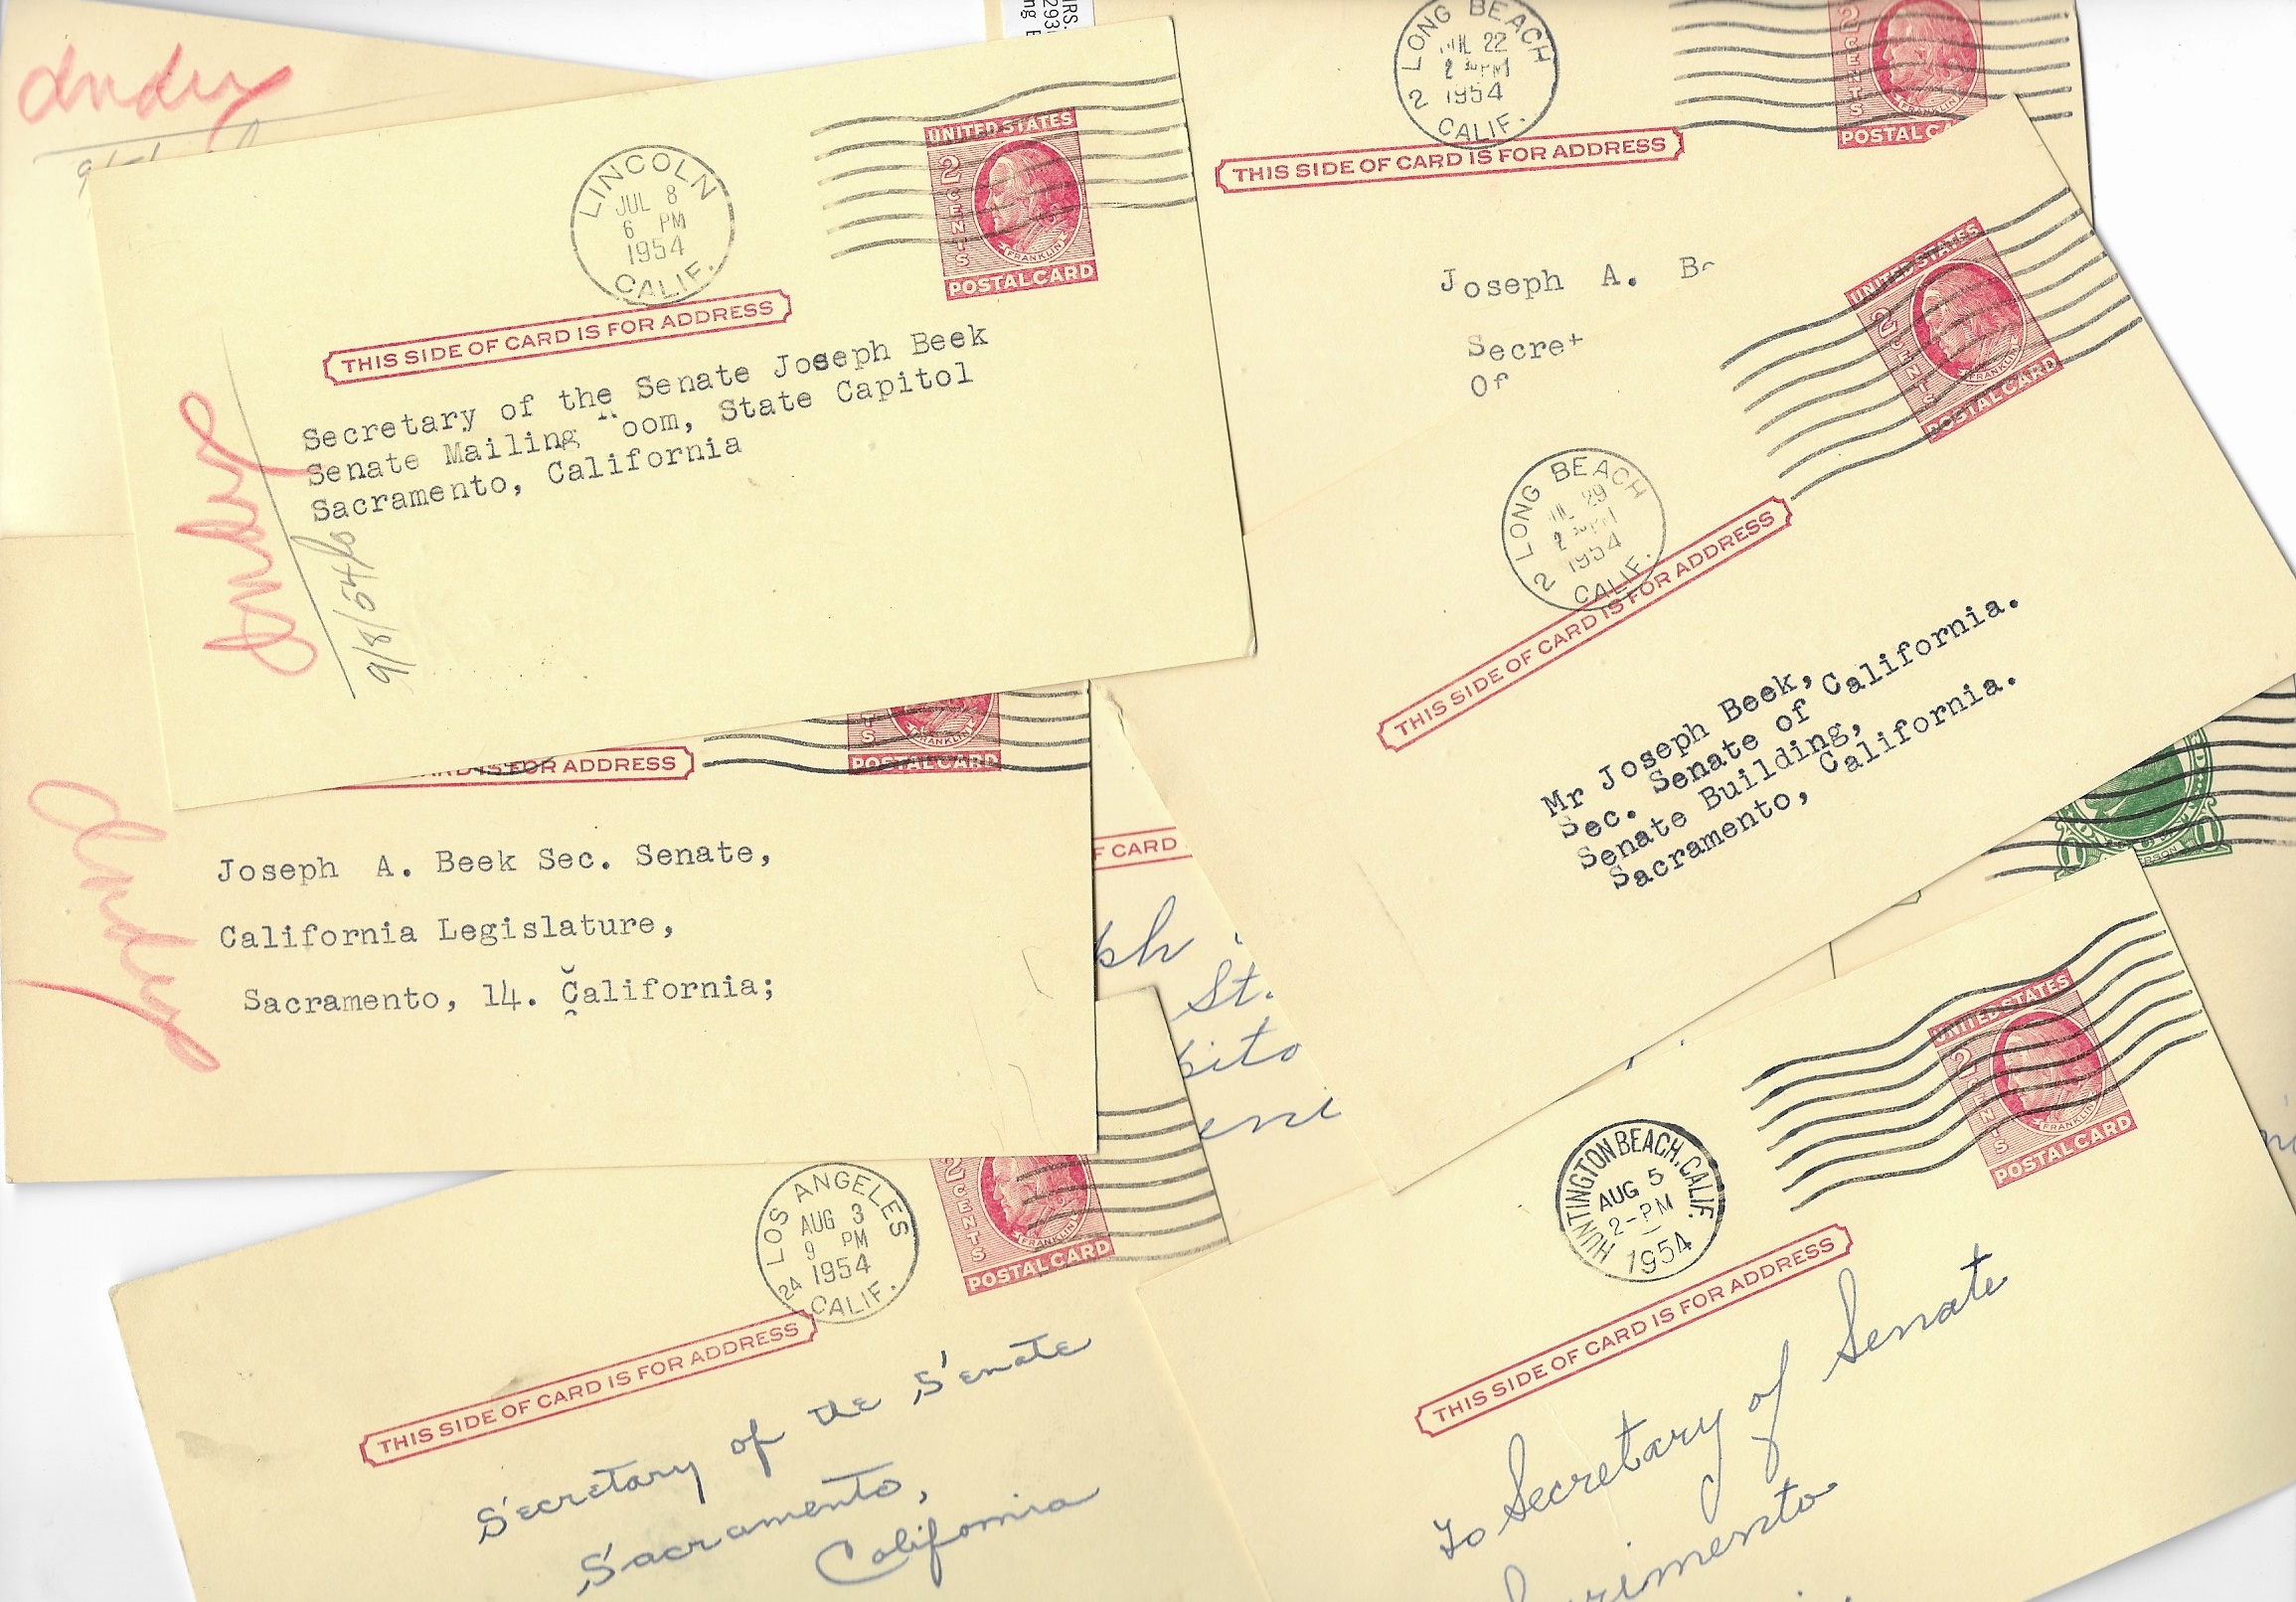 Andy
LINCOLN
JUL 8
6 PM
1954
CALIF.
UNITED STATES
2 CENTS
FRANKLIN
POSTAL CARD
THIS SIDE OF CARD IS FOR ADDRESS
Secretary of the Senate Joseph Beek
Senate Mailing Room, State Capitol
Sacramento, California
Andy
9/8/54
LONG BEACH
JUL 22
2 30 PM
1954
2 CALIF.
2 CENTS
FRANKLIN
POSTAL CA
THIS SIDE OF CARD IS FOR ADDRESS
Joseph A. Be
Secret
Of
UNITED STATES
2 CENTS
FRANKLIN
POSTAL CARD
LONG BEACH
JUL 29
2 30 PM
1954
2 CALIF.
THIS SIDE OF CARD IS FOR ADDRESS
Mr Joseph Beek,
Sec. Senate of California.
Senate Building,
Sacramento, California.
TS
FRANKLIN
POSTAL CARD
CARD IS FOR ADDRESS
Andy
Joseph A. Beek Sec. Senate,
California Legislature,
Sacramento, 14. California;
F CARD
ph
St.
pito
eni
1
LOS ANGELES
AUG 3
9 PM
1954
24 CALIF.
2 CENTS
FRANKLIN
POSTAL CARD
THIS SIDE OF CARD IS FOR ADDRESS
Secretary of the Senate
Sacramento,
California
UNITED STATES
2 CENTS
FRANKLIN
POSTAL CARD
HUNTINGTON BEACH, CALIF.
AUG 5
2-PM
1954
THIS SIDE OF CARD IS FOR ADDRESS
To Secretary of Senate
Sacrimento